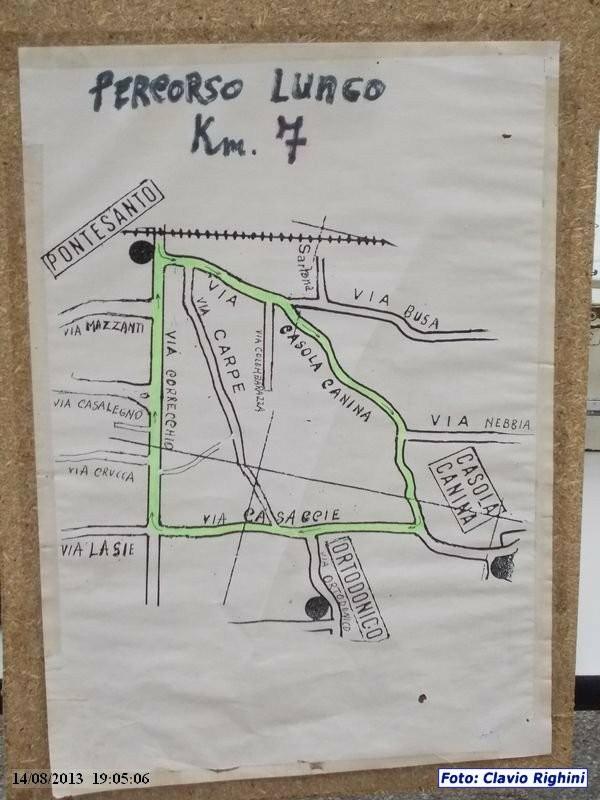 PERCORSO LUNGO
Km. 7
PONTESANTO
Sartona
VIA BUSA
VIA MAZZANTI
VIA CORRECCHIO
VIA CARPE
VIA COLOMBARAZZA
VIA CASOLA CANINA
VIA CASALEGNO
VIA NEBBIA
VIA CRUCCA
CASOLA
CANINA
VIA LASIE
VIA CASAGGIE
VIA ORTODONICO
ORTODONICO
14/08/2013 19:05:06
Foto: Clavio Righini